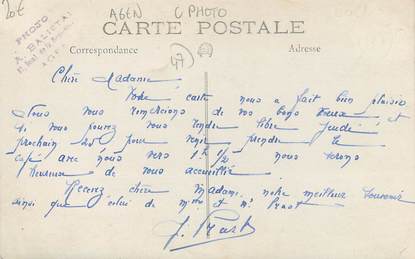 20€
AGEN
C PHOTO
47
PHOTO
A. BALISTAI
AGEN
CARTE POSTALE
Correspondance
Adresse
Chère Madame
Votre carte nous a fait bien plaisir
Nous vous remercions de vos bons vœux et
si vous pouvez vous rendre libre jeudi
prochain pour venir prendre le
café avec nous vers 1h 1/2 nous serons
heureux de vous accueillir
Recevez chère Madame notre meilleur souvenir
ainsi que celui de Mme et Mr
J.